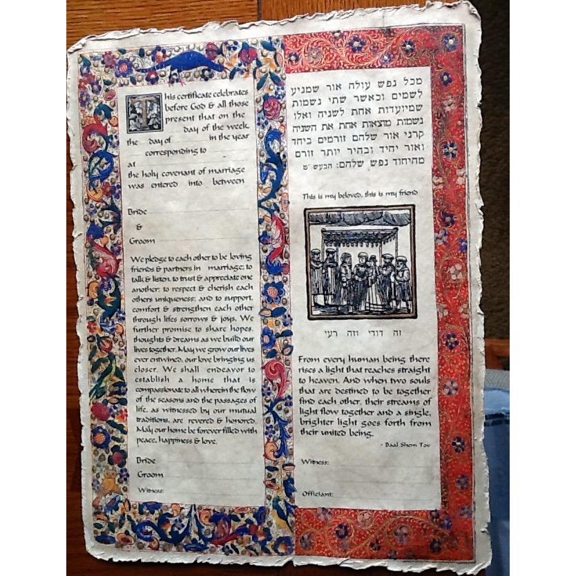 This certificate celebrates
before God & all those
present that on the
day of the week,
the day of in the year
corresponding to
at
the holy covenant of marriage
was entered into between
Bride
&
Groom
We pledge to each other to be loving
friends & partners in marriage; to
talk & listen, to trust & appreciate one
another; to respect & cherish each
others uniqueness; and to support,
comfort & strengthen each other
through life's sorrows & joys. We
further promise to share hopes,
thoughts & dreams as we build our
lives together. May we grow our lives
ever entwined, our love bringing us
closer. We shall endeavor to
establish a home that is
compassionate to all wherein the flow
of the seasons and the passages of
life, as witnessed by our mutual
traditions, are revered & honored.
May our home be forever filled with
peace, happiness & love.
Bride
Groom
Witness:
מכל נפש עולה אור שמגיע
לשמים וכאשר שתי נשמות
שמיועדות אחת לשניה ואלו
נשמות מוצאות אחת את השניה
קרני אור שלהם זורמים ביחד
ואור יחיד ובהיר יותר זורם
מהיחוד נפש שלהם: הבעש"ט
This is my beloved, this is my friend
זה דודי וזה רעי
From every human being there
rises a light that reaches straight
to heaven. And when two souls
that are destined to be together
find each other, their streams of
light flow together and a single,
brighter light goes forth from
their united being.
- Baal Shem Tov
Witness:
Officiant: